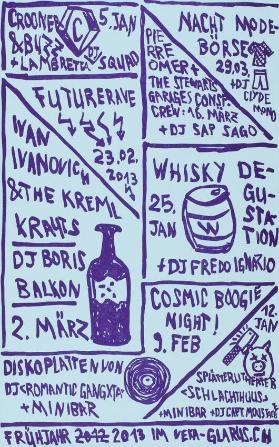 CROONER
& BUZZ
+ LAMBRETTA
DJ
SQUAD
5. JAN
NACHT MODE-
BÖRSE
29.03.
+ DJ
CLYDE
MONO
PIERRE
OMER +
THE STEWARTS
GARAGES CONSP.
CREW: 16. MÄRZ
+ DJ SAP SAGO
FUTURERAVE
23.02.
2013
WAN
IVANOVICH
& THE KREML
KRAUTS
DJ BORIS
BALKON
2. MÄRZ
WHISKY DE-
GUSTA-
TION
25.
JAN
W
+ DJ FREDO IGNAZIO
COSMIC BOOGIE
NIGHT!
9. FEB
12. JAN
SPLÄTTERLITHEATER
<SCHLACHTHUUS>
+ MINIBAR + DJ CAPT. MOUSTACHE
DISKOPLATTEN VON
DJ <ROMANTIC GANGXTA>
+ MINIBAR
FRÜHJAHR 2012 2013 IM